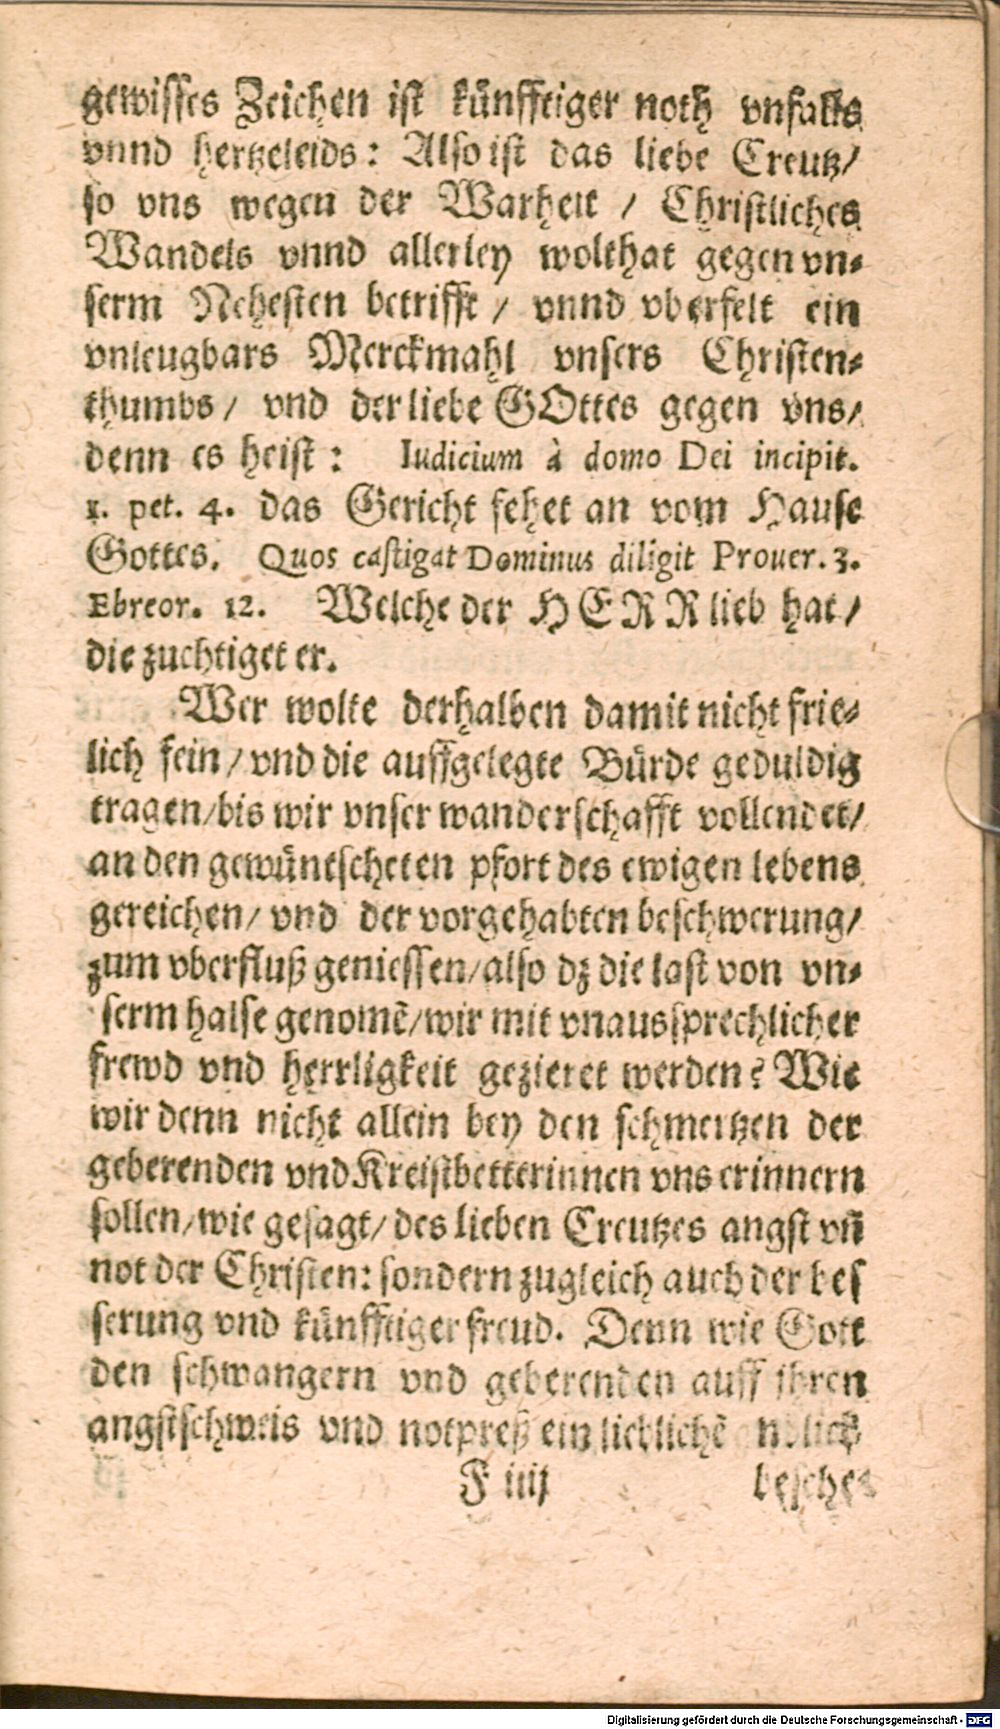 gewisses Zeichen ist künfftiger noth vnfalls
vnnd hertzeleids: Also ist das liebe Creutz/
so vns wegen der Warheit / Christliches
Wandels vnnd allerley wolthat gegen vn-
serm Nehesten betrifft / vnnd vberfelt ein
vnleugbars Merckmahl vnsers Christen-
thumbs/ vnd der liebe GOttes gegen vns/
denn es heist: Iudicium à domo Dei incipit.
1. pet. 4. das Gericht fehet an vom Hause
Gottes. Quos castigat Dominus diligit Prouer. 3.
Ebreor. 12. Welche der HERR lieb hat/
die zuchtiget er.
Wer wolte derhalben damit nicht frie-
lich sein/vnd die auffgelegte Bürde geduldig
tragen/bis wir vnser wanderschafft vollendet/
an den gewüntscheten pfort des ewigen lebens
gereichen/ vnd der vorgehabten beschwerung/
zum vberfluß geniessen/also dz die last von vn-
serm halse genomẽ/wir mit vnaussprechlicher
frewd vnd herrligkeit gezieret werden? Wie
wir denn nicht allein bey den schmertzen der
geberenden vnd Kreistbetterinnen vns erinnern
sollen/wie gesagt/des lieben Creutzes angst vñ
not der Christen: sondern zugleich auch der bes
serung vnd künfftiger freud. Denn wie Gott
den schwangern vnd geberenden auff ihren
angstschweis vnd notpreß ein lieblichẽ
F iiij besche-
Digitalisierung gefördert durch die Deutsche Forschungsgemeinschaft - DFG